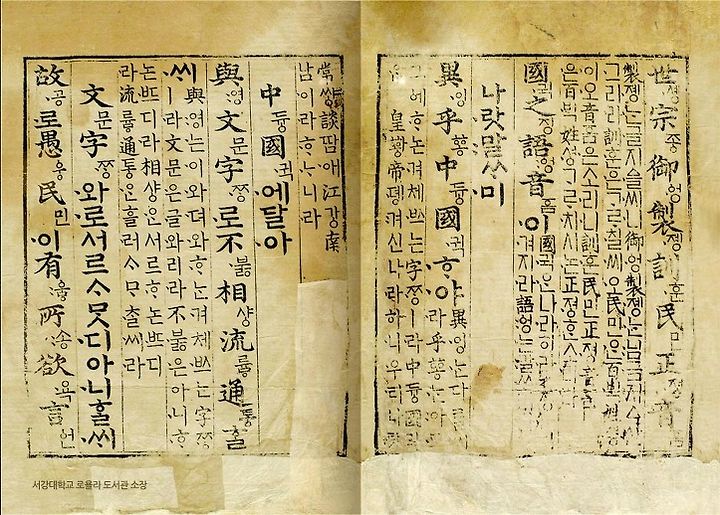 世솅宗종御엉製졩訓훈民민正져ᇰ音
製졩는글지ᅀᅳᆯ씨니御엉製졩는님금지ᅀᅳ샨
그리라訓훈은ᄀᆞᄅᆞ칠씨오民민ᄋᆞᆫ百ᄇᆡᆨ姓셔ᇰ
이오音ᅙᅳᆷ은소리니訓훈民민正져ᇰ
은百ᄇᆡᆨ姓셔ᇰᄀᆞᄅᆞ치시논正져ᇰᄒᆞᆫ
國귁之징語ᅌᅥᆼ音ᅙᅳᆷ이國귁ᄋᆞᆫ나라히라
겨지라語ᅌᅥᆼ는
나랏말ᄊᆞ미
異잉乎ᅘᅩᆼ中듀ᇰ國귁ᄒᆞ야異잉ᄂᆞᆫ다ᄅᆞᆯ씨라乎ᅘᅩᆼᄂᆞᆫ아
그ᅌᅦᄒᆞ논겨체ᄡᅳ는字ᄍᆞᆼㅣ라中듀ᇰ國귁
皇황帝뎽겨신나라히니우리나
常쌰ᇰ談땀애江가ᇰ南
남이라ᄒᆞᄂᆞ니라
中듀ᇰ國귁에달아
與영文문字ᄍᆞᆼ로不부ᇙ相샤ᇰ流류ᇢ通토ᇰᄒᆞᆯ
ᄊᆡ與영는이와뎌와ᄒᆞ논겨체ᄡᅳ는字ᄍᆞᆼ
ㅣ라文문은글와리라不부ᇙ은아니ᄒᆞ
논ᄠᅳ디라相샤ᇰᄋᆞᆫ서르ᄒᆞ논ᄠᅳ디
라流류ᇢ通토ᇰᄋᆞᆫ흘러ᄉᆞᄆᆞᄎᆞᆯ씨라
文문字ᄍᆞᆼ와로서르ᄉᆞᄆᆞᆺ디아니ᄒᆞᆯᄊᆡ
故공로愚ᅌᅮᆼ民민이有우ᇢ所송欲욕言언
서강대학교 로욜라 도서관 소장